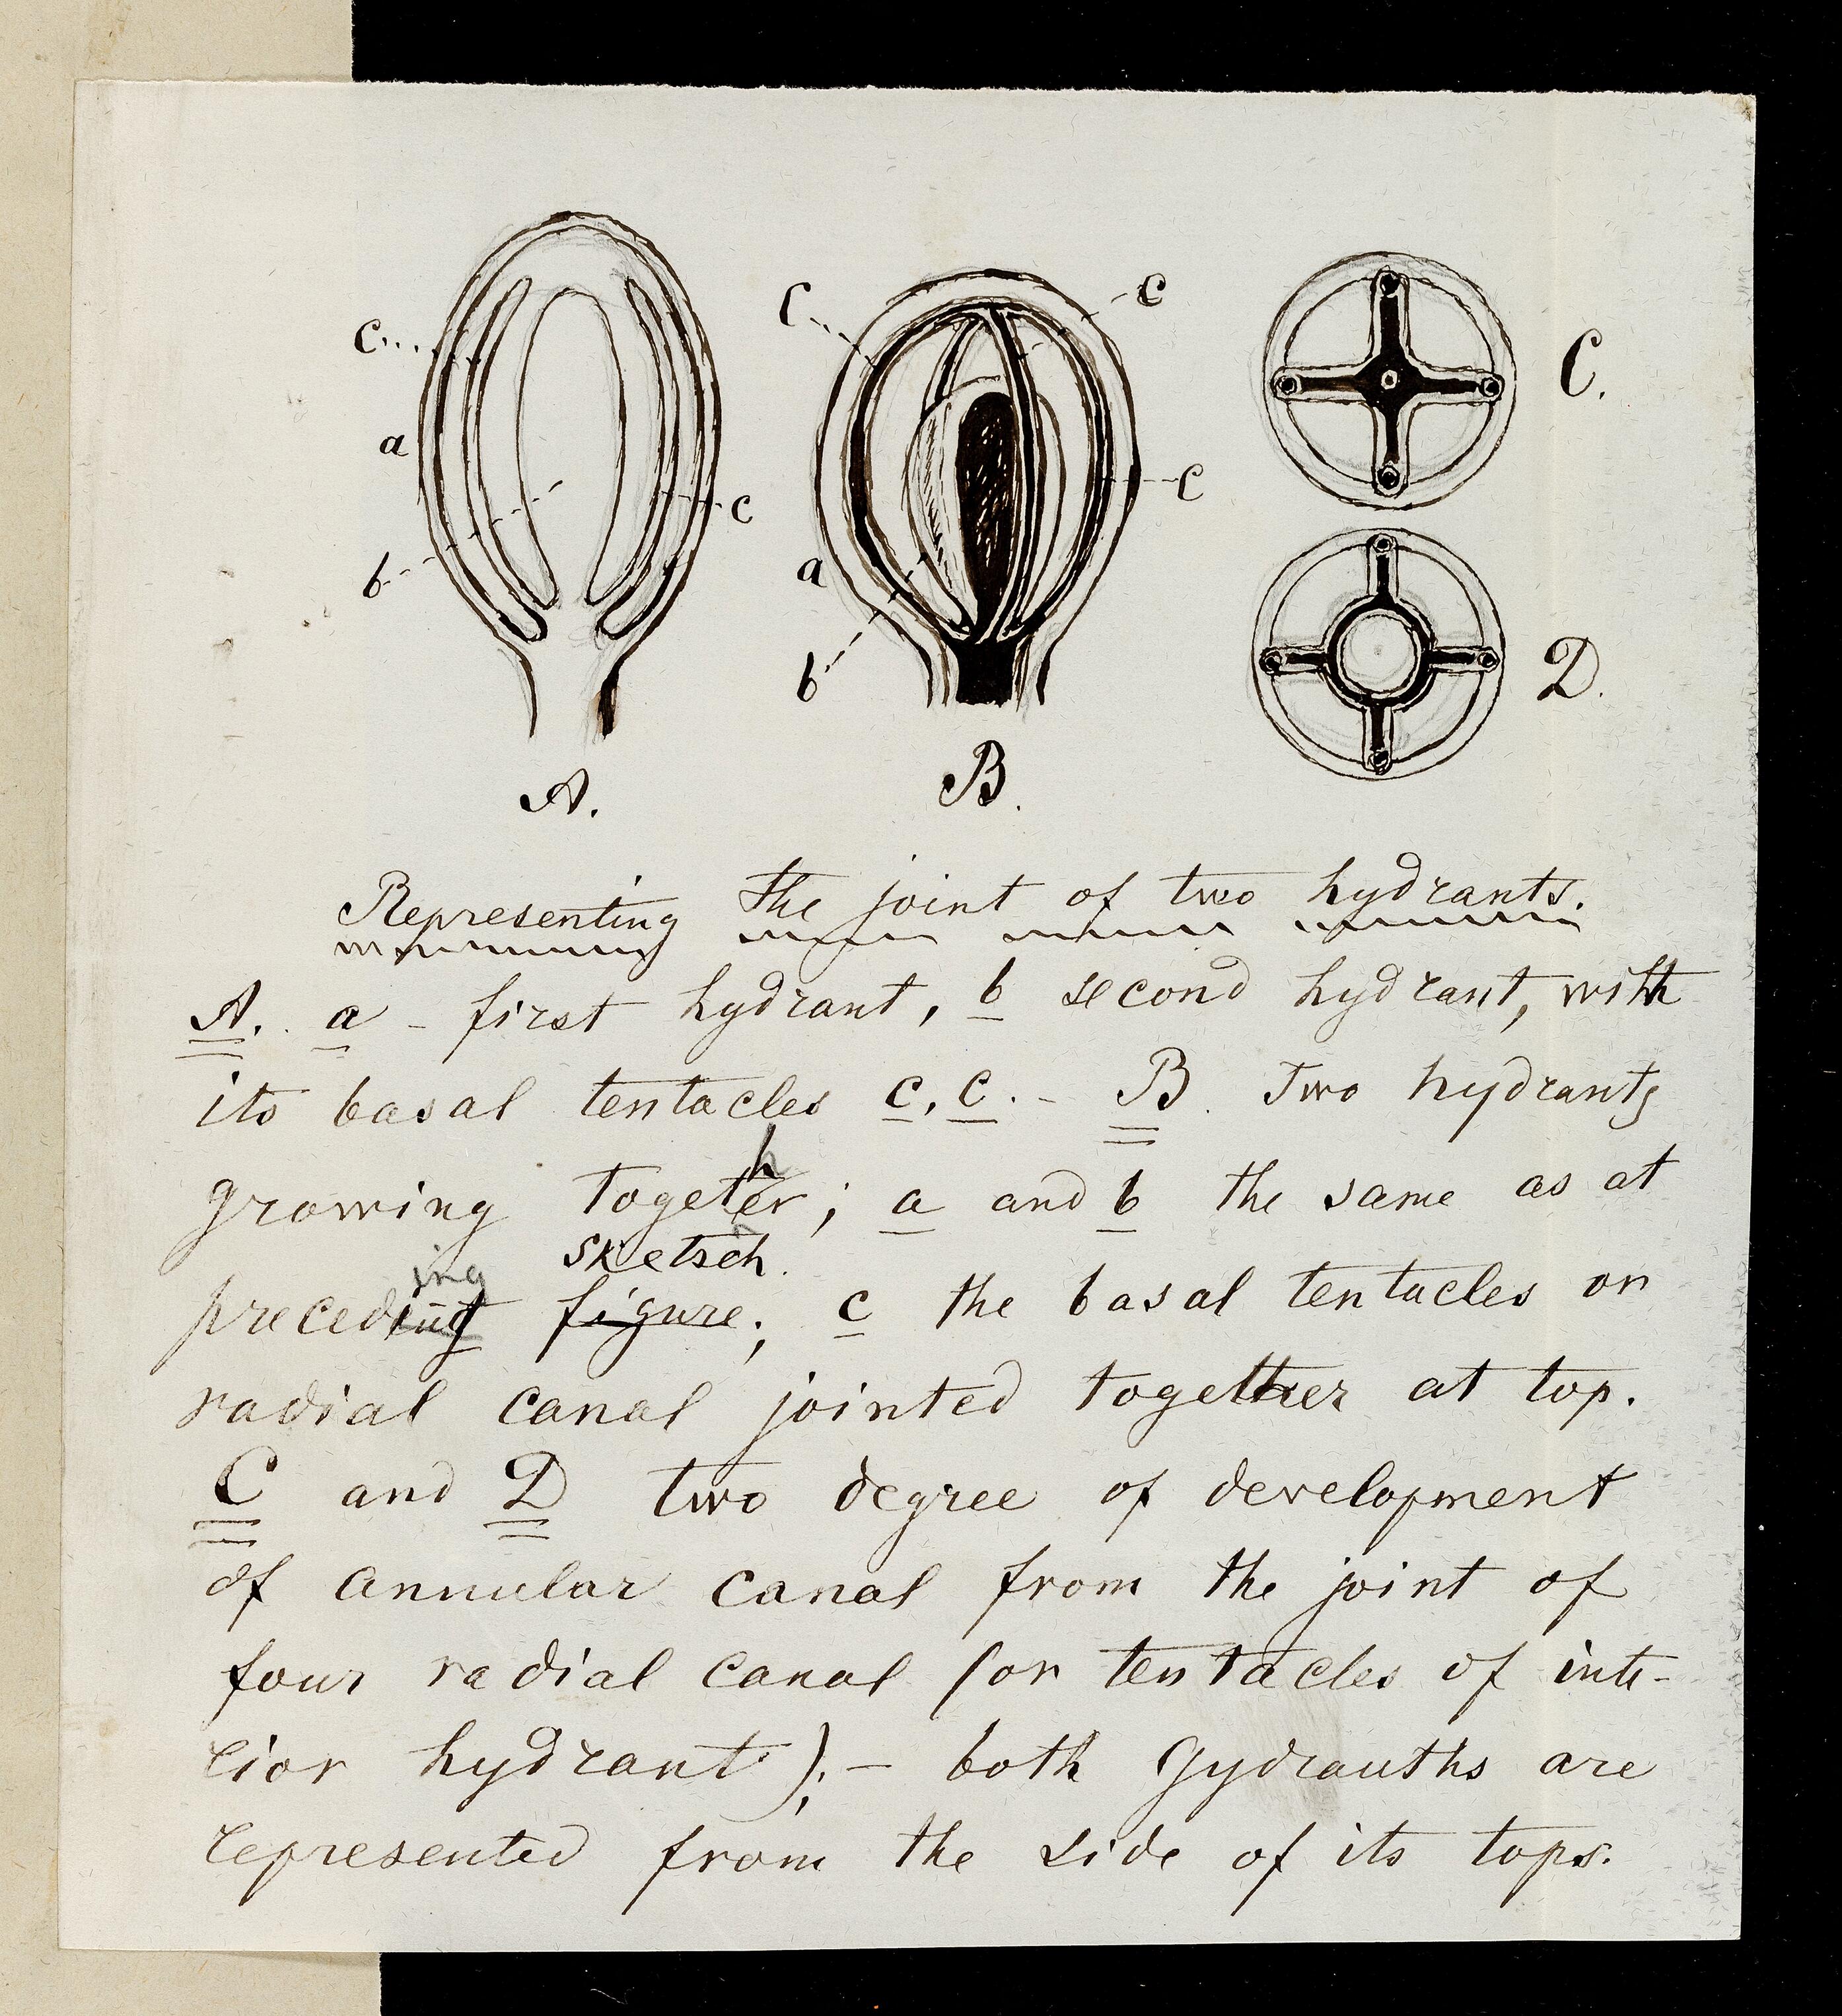 c
a
b
c
A.
C
c
c
a
b
B.
C.
D.
Representing the joint of two hydrants.
A. a - first hydrant, b second hydrant, with
its basal tentacles c, c. - B. Two hydrants
growing together; a and b the same as at
sketsch.
preceding figure; c the basal tentacles or
radial canal jointed together at top.
C and D two degree of development
of annular canal from the joint of
four radial canal (or tentacles of inte-
rior hydrant); - both Gydrauths are
represented from the side of its tops.